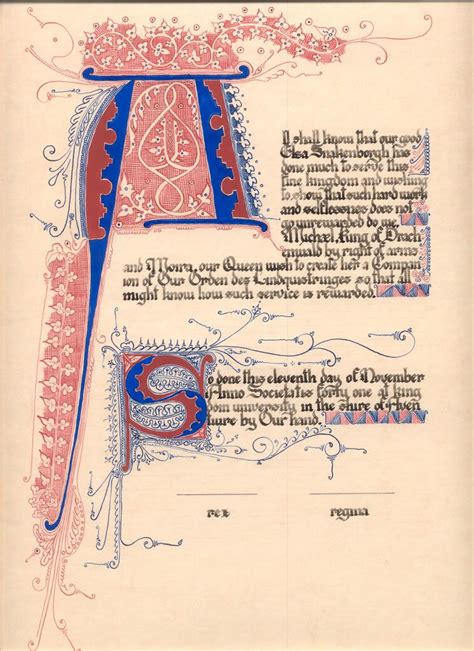 All shall know that our good
Elsa Snakenborgh has
done much to serve this
fine kingdom and wishing
to show that such hard work
and selflessness does not
go unrewarded do we,
Michael, King of Drach
enwald by right of arms
and Moira, our Queen wish to create her a Compan
ion of Our Orden des Lindquistringes so that all
might know how such service is rewarded.
So done this eleventh day of November
Anno Societatis forty one at king
dom university in the shire of Aven
shire by Our hand.
rex regina